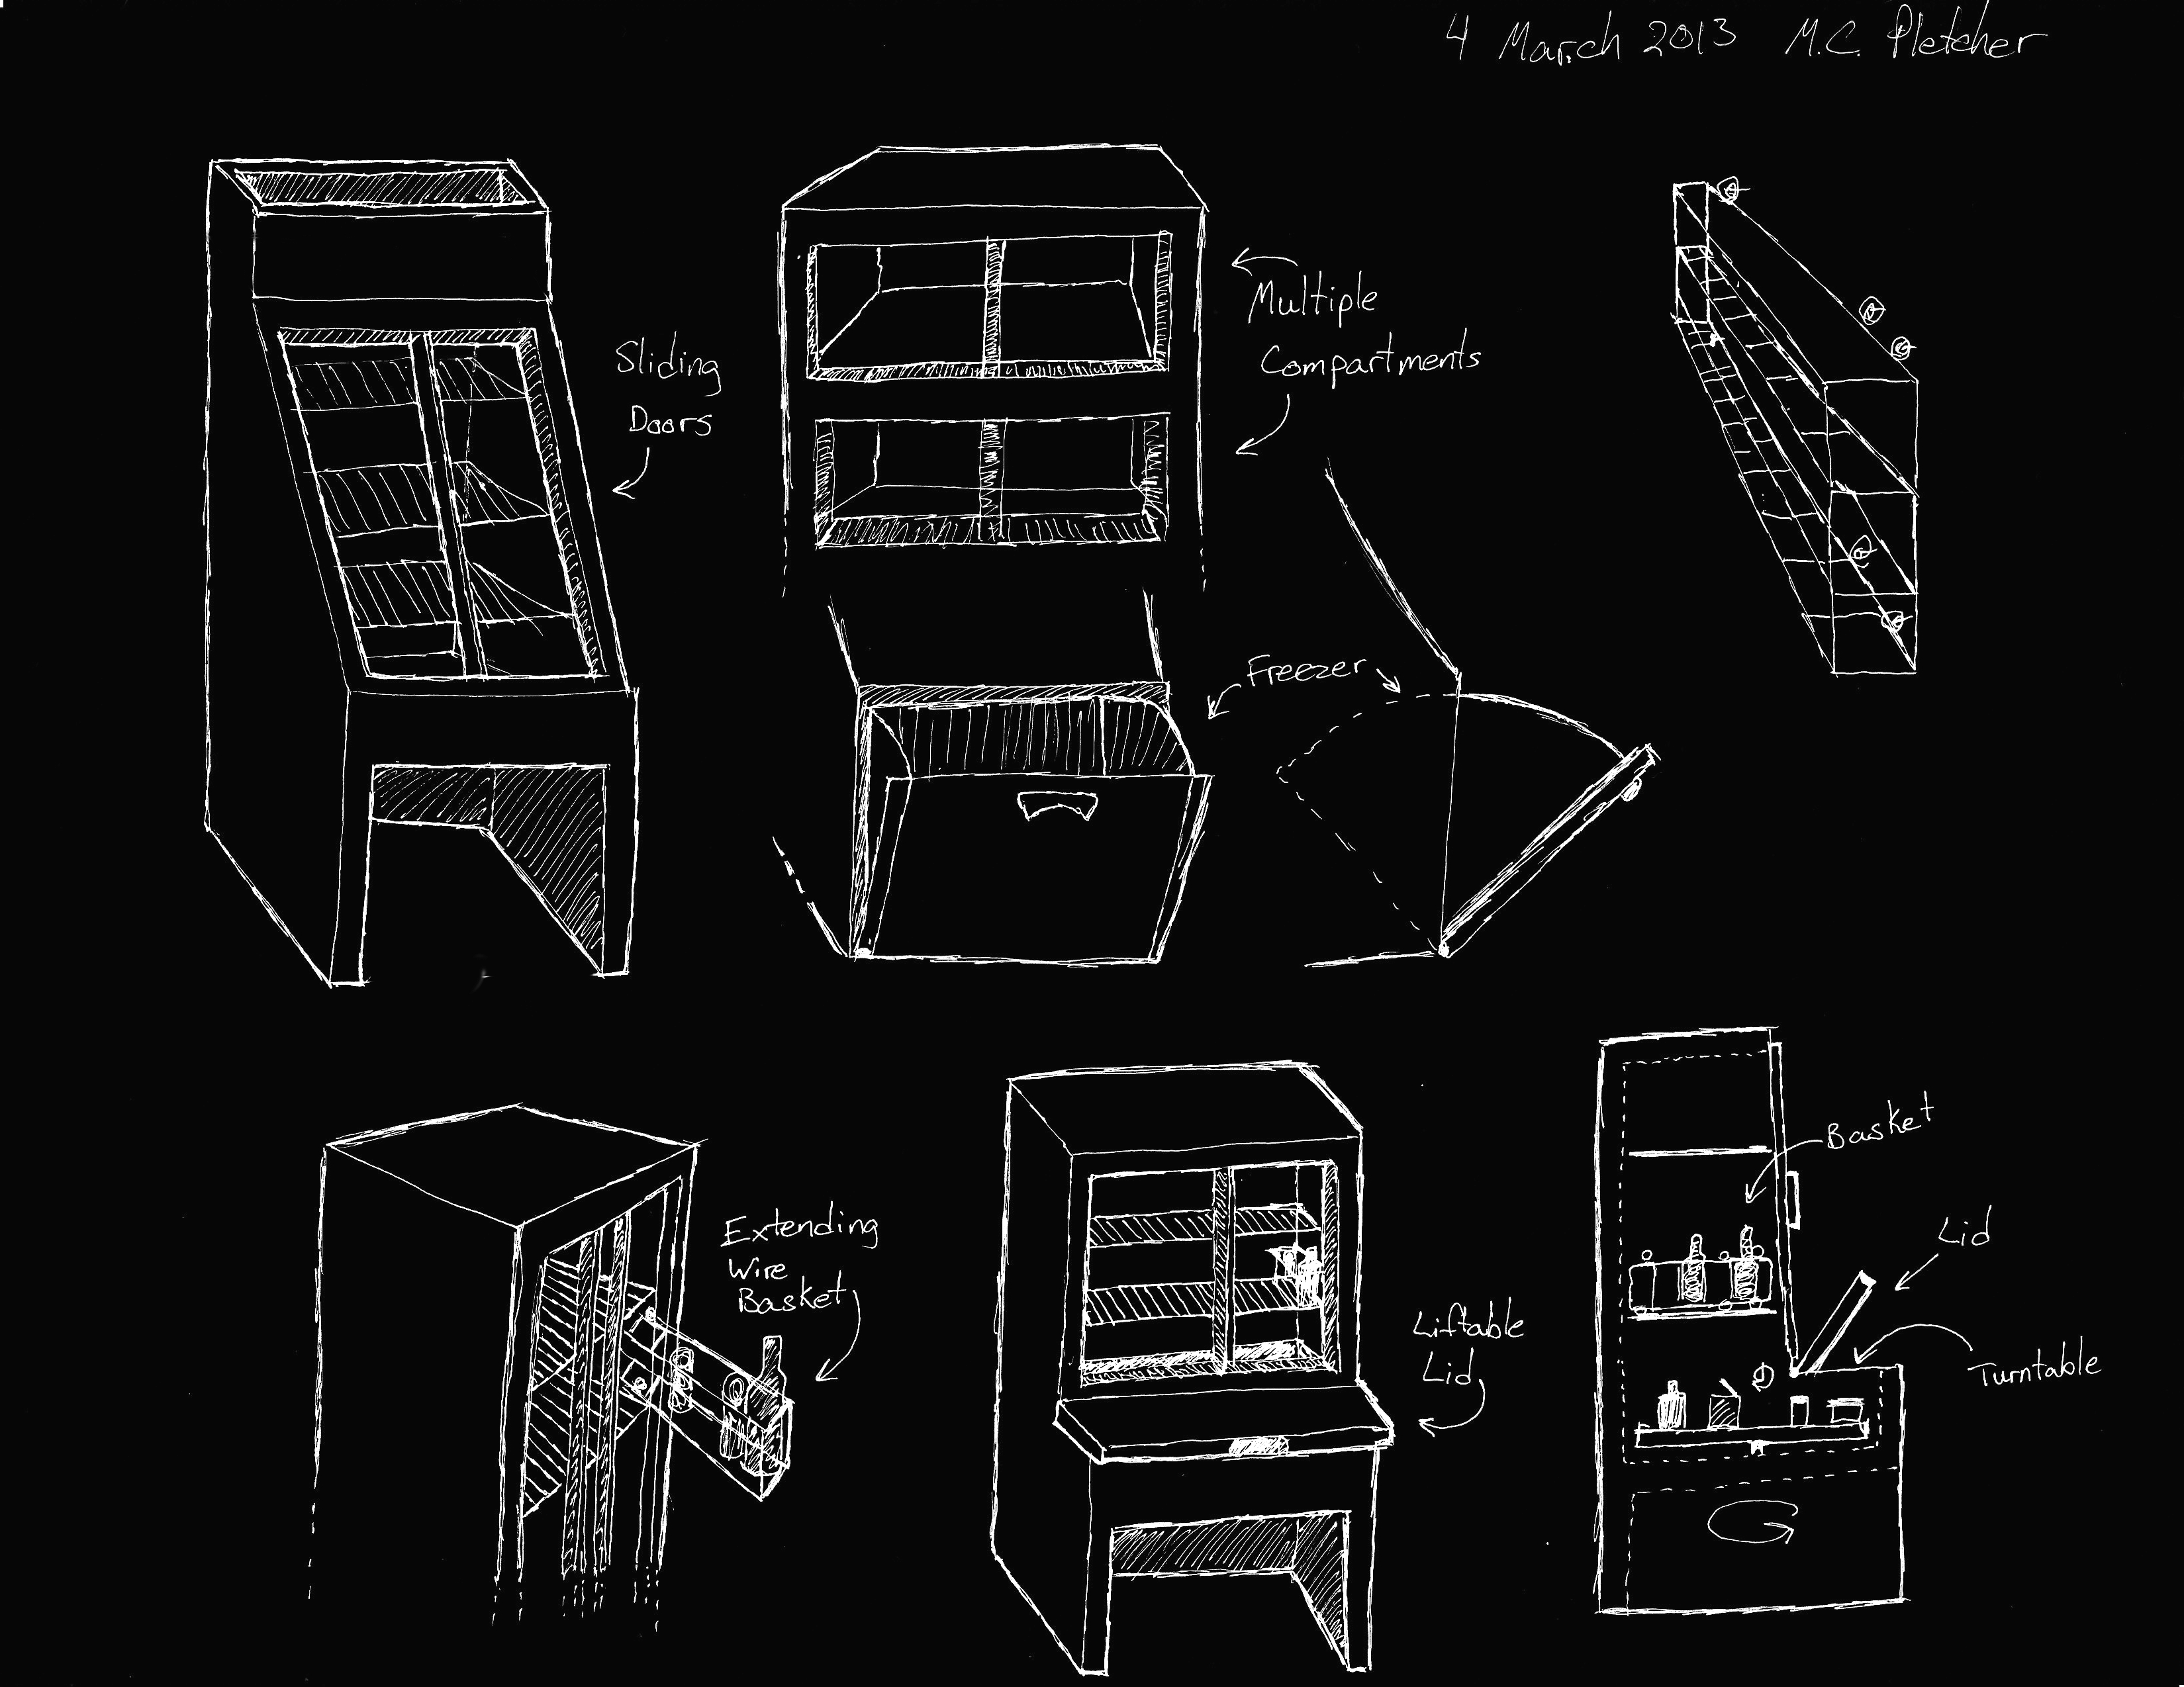 4 March 2013 M.C. Pletcher
Sliding
Doors
Multiple
Compartments
Freezer
Extending
Wire
Basket
Liftable
Lid
Basket
Lid
Turntable